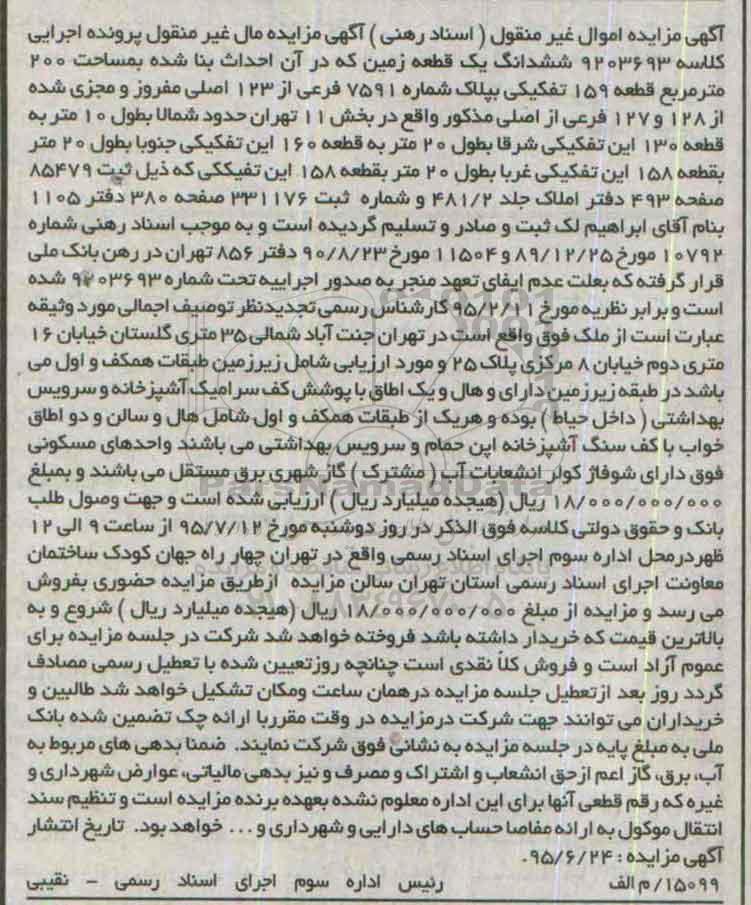 آگهی مزایده اموال غیر منقول ( اسناد رهنی ) آگهی مزایده مال غیر منقول پرونده اجرایی
کلاسه ۹۲۰۳۶۹۳ ششدانگ یک قطعه زمین که در آن احداث بنا شده بمساحت ۲۰۰
مترمربع قطعه ۱۵۹ تفکیکی بپلاک شماره ۷۵۹۱ فرعی از ۱۲۳ اصلی مفروز و مجزی شده
از ۱۲۸ و ۱۲۷ فرعی از اصلی مذکور واقع در بخش ۱۱ تهران حدود شمالا بطول ۱۰ متر به
قطعه ۱۳۰ این تفکیکی شرقا بطول ۲۰ متر به قطعه ۱۶۰ این تفکیکی جنوبا بطول ۲۰ متر
بقطعه ۱۵۸ این تفکیکی غربا بطول ۲۰ متر بقطعه ۱۵۸ این تفیککی که ذیل ثبت ۸۵۴۷۹
صفحه ۴۹۳ دفتر املاک جلد ۴۸۱/۲ و شماره ثبت ۳۳۱۱۷۶ صفحه ۳۸۰ دفتر ۱۱۰۵
بنام آقای ابراهیم لک ثبت و صادر و تسلیم گردیده است و به موجب اسناد رهنی شماره
۱۰۷۹۲ مورخ ۸۹/۱۲/۲۵ و ۱۱۵۰۴ مورخ ۹۰/۸/۲۳ دفتر ۸۵۶ تهران در رهن بانک ملی
قرار گرفته که بعلت عدم ایفای تعهد منجر به صدور اجراییه تحت شماره ۹۲۰۳۶۹۳ شده
است و برابر نظریه مورخ ۹۵/۲/۱۱ کارشناس رسمی تجدیدنظر توصیف اجمالی مورد وثیقه
عبارت است از ملک فوق واقع است در تهران جنت آباد شمالی ۳۵ متری گلستان خیابان ۱۶
متری دوم خیابان ۸ مرکزی پلاک ۲۵ و مورد ارزیابی شامل زیرزمین طبقات همکف و اول می
باشد در طبقه زیرزمین دارای و هال و یک اطاق با پوشش کف سرامیک آشپزخانه و سرویس
بهداشتی ( داخل حیاط ) بوده و هریک از طبقات همکف و اول شامل هال و سالن و دو اطاق
خواب با کف سنگ آشپزخانه این حمام و سرویس بهداشتی می باشند واحدهای مسکونی
فوق دارای شوفاژ کولر انشعابات آب ( مشترک ) گاز شهری برق مستقل می باشند و بمبلغ
۱۸/۰۰۰/۰۰۰/۰۰۰ ریال (هیجده میلیارد ریال ) ارزیابی شده است و جهت وصول طلب
بانک و حقوق دولتی کلاسه فوق الذکر در روز دوشنبه مورخ ۹۵/۷/۱۲ از ساعت ۹ الی ۱۲
ظهردرمحل اداره سوم اجرای اسناد رسمی واقع در تهران چهار راه جهان کودک ساختمان
معاونت اجرای اسناد رسمی استان تهران سالن مزایده ازطریق مزایده حضوری بفروش
می رسد و مزایده از مبلغ ۱۸/۰۰۰/۰۰۰/۰۰۰ ریال (هیجده میلیارد ریال ) شروع و به
بالاترین قیمت که خریدار داشته باشد فروخته خواهد شد شرکت در جلسه مزایده برای
عموم آزاد است و فروش کلاً نقدی است چنانچه روزتعیین شده با تعطیل رسمی مصادف
گردد روز بعد ازتعطیل جلسه مزایده درهمان ساعت ومکان تشکیل خواهد شد طالبین و
خریداران می توانند جهت شرکت درمزایده در وقت مقرربا ارائه چک تضمین شده بانک
ملی به مبلغ پایه در جلسه مزایده به نشانی فوق شرکت نمایند. ضمنا بدهی های مربوط به
آب، برق، گاز اعم ازحق انشعاب و اشتراک و مصرف و نیز بدهی مالیاتی، عوارض شهرداری و
غیره که رقم قطعی آنها برای این اداره معلوم نشده بعهده برنده مزایده است و تنظیم سند
انتقال موکول به ارائه مفاصا حساب های دارایی و شهرداری و ... خواهد بود. تاریخ انتشار
آگهی مزایده : ۹۵/۶/۲۴.
۱۵۰۹۹/ م الف رئیس اداره سوم اجرای اسناد رسمی - نقیبی
ParsNamadData